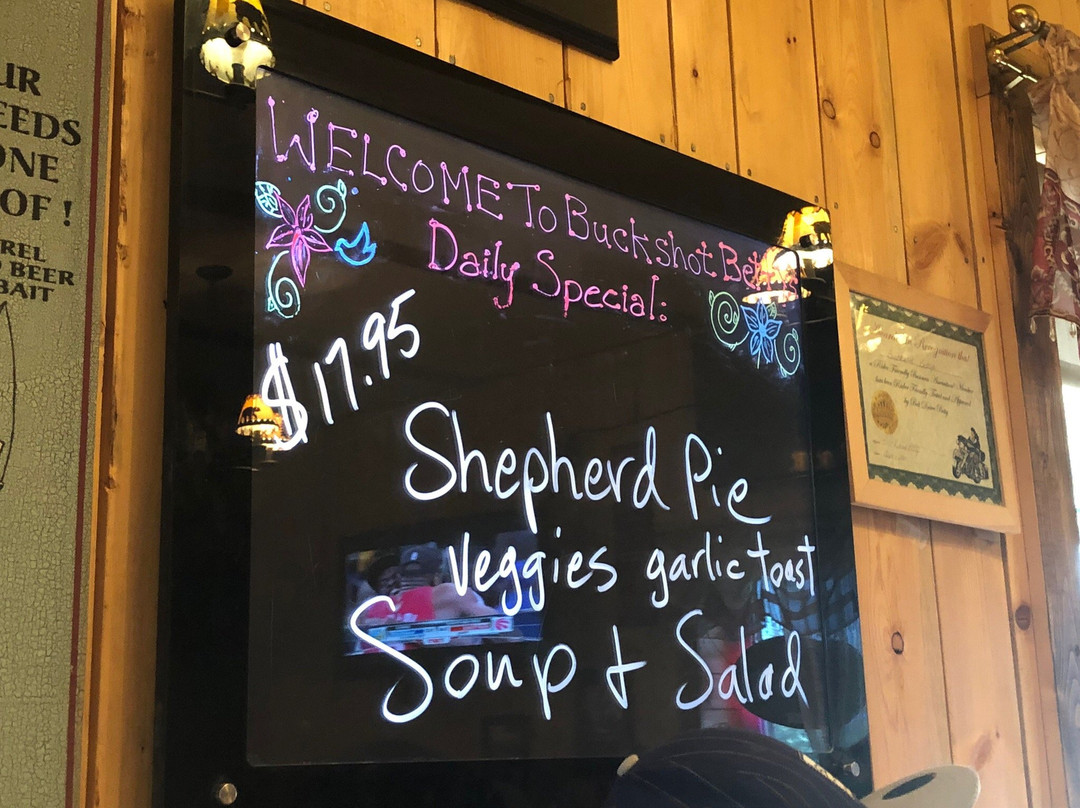 UR
EEDS
ONE
OF !
REL
BEER
BAIT
WELCOME To Buckshot
Daily Special:
$17.95
Shepherd Pie
Veggies garlic toast
Soup + Salad